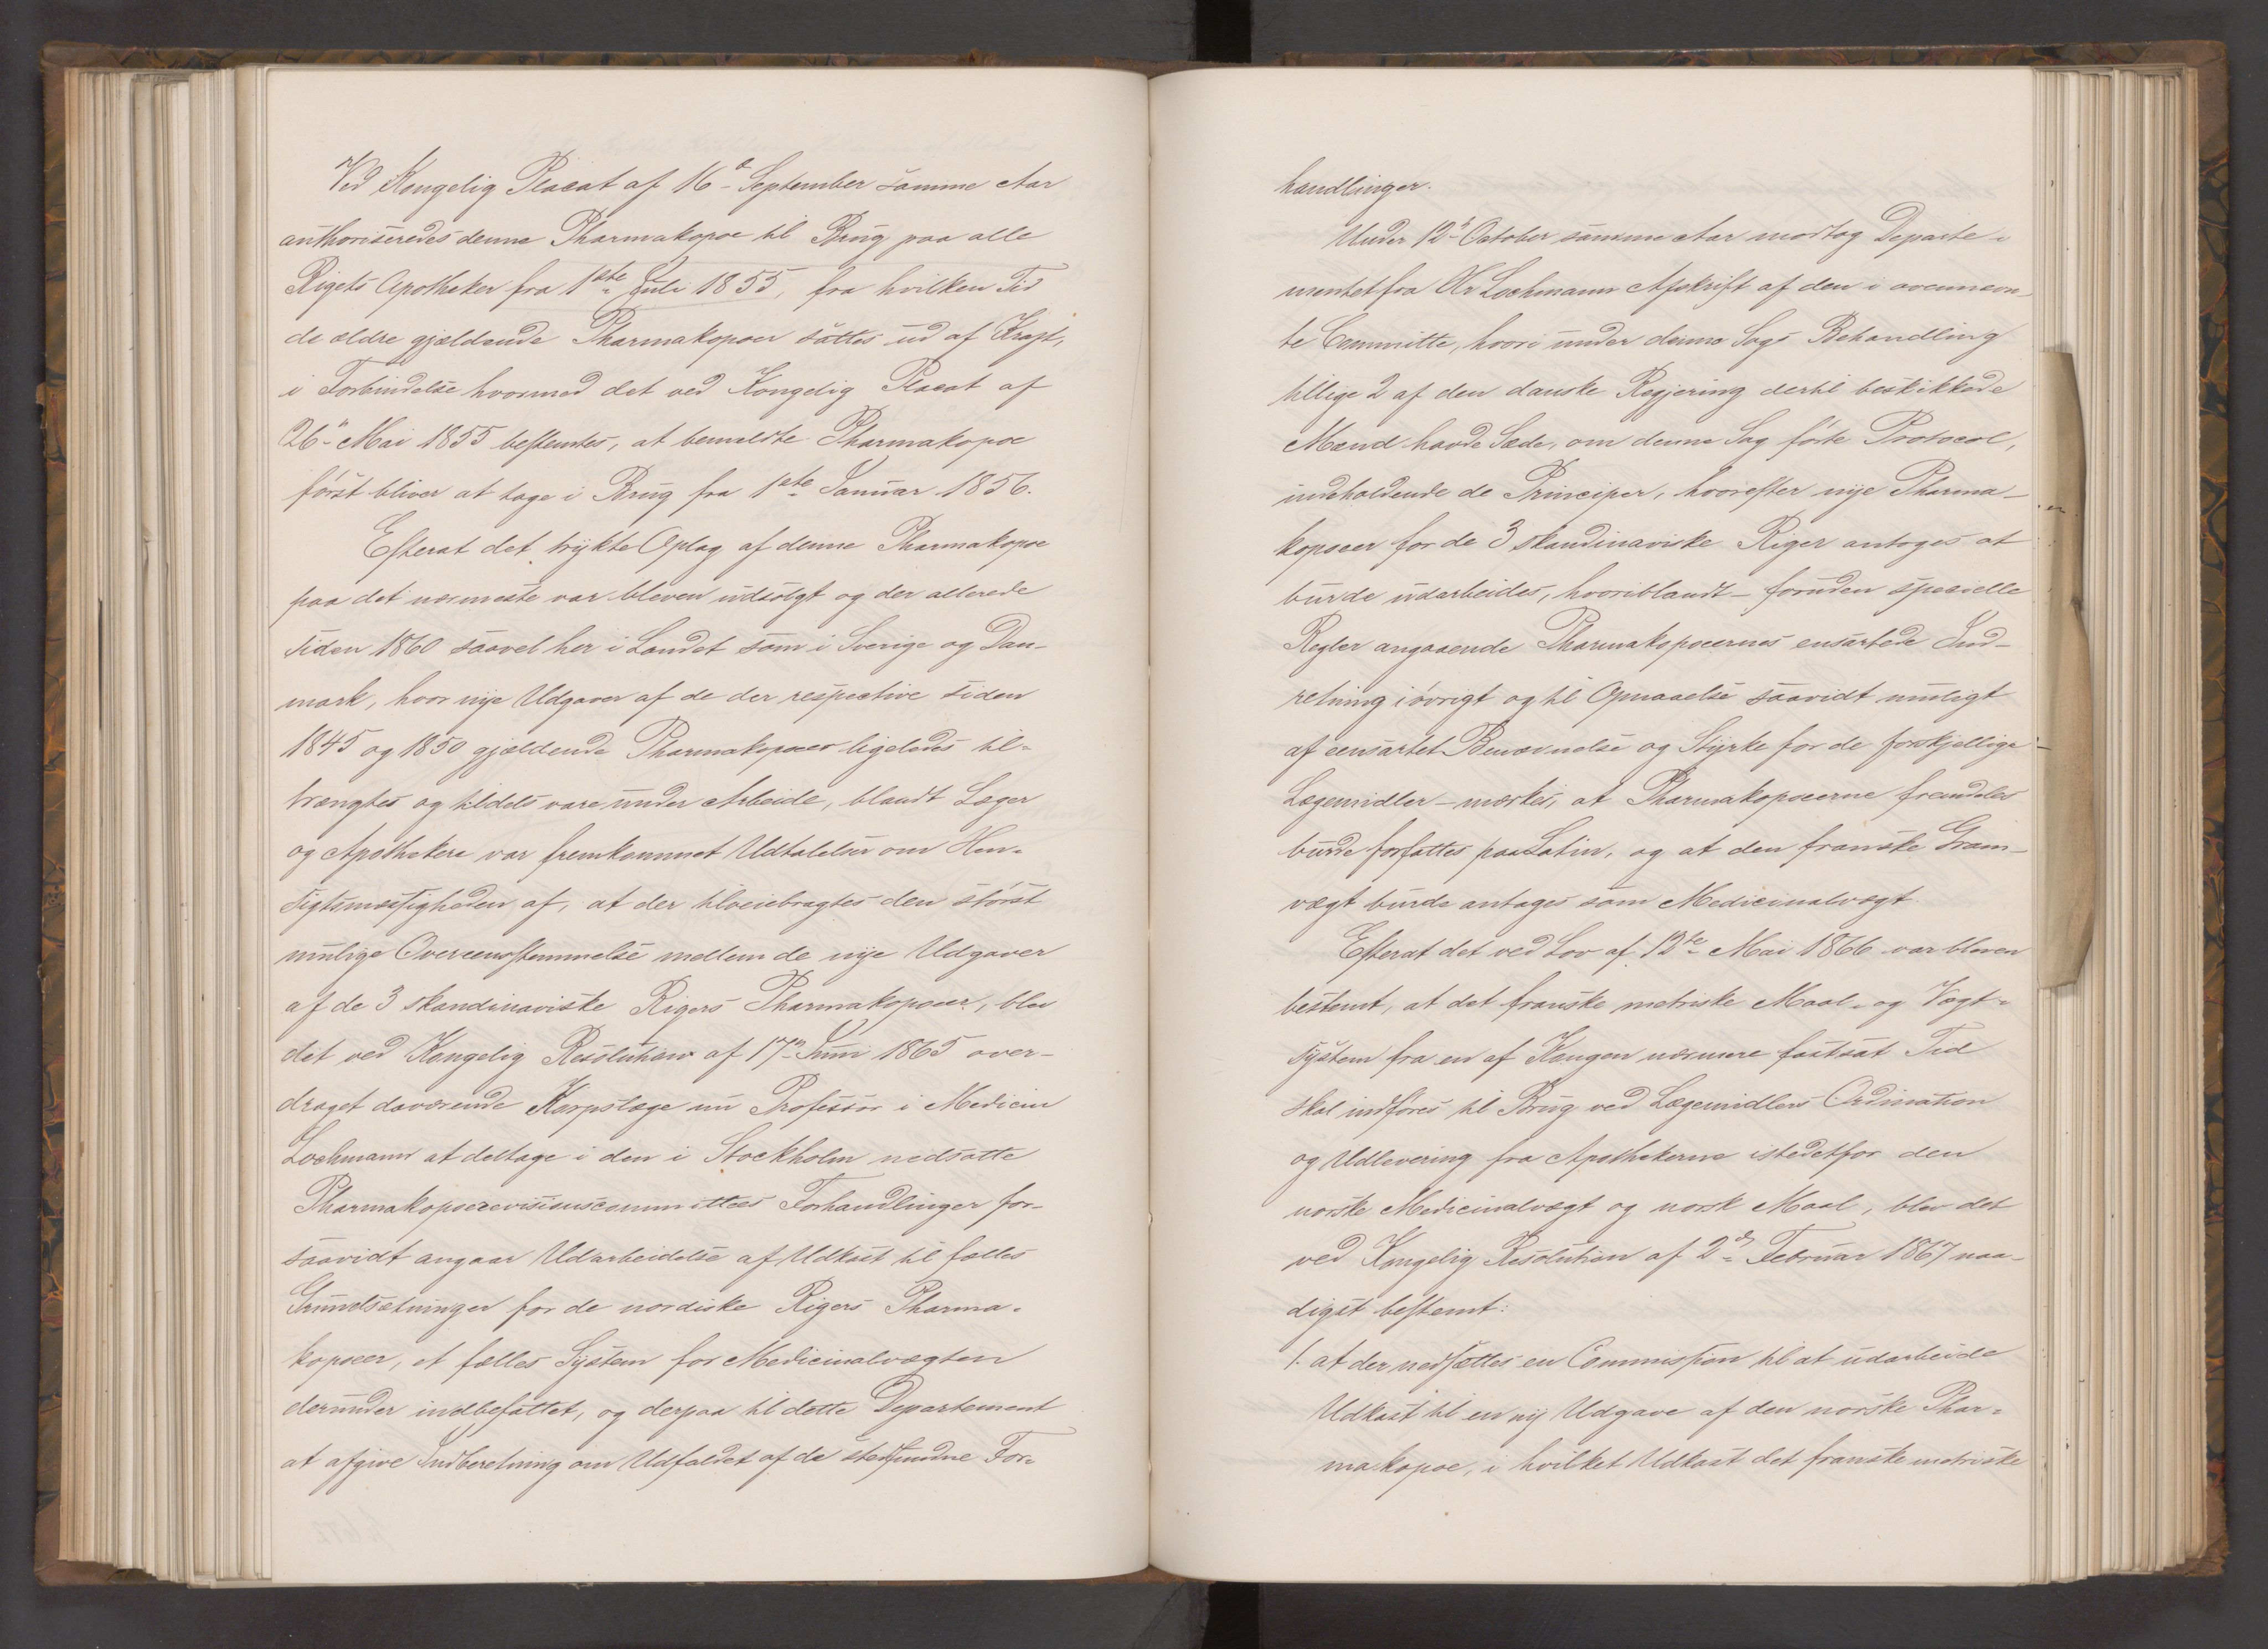 Ved Kongelig Placat af 16de September samme Aar
authoriseredes denne Pharmakopoe til Brug paa alle
Rigets Apotheker fra 1ste Juli 1855, fra hvilken Tid
de ældre gjældende Pharmakopoer sattes ud af Kraft,
i Forbindelse hvormed det ved Kongelig Placat af
26de Mai 1855 bestemtes, at bemeldte Pharmakopoe
först bliver at tage i Brug fra 1ste Januar 1856.
Efterat det trykte Oplag af denne Pharmakopoe
paa det nærmeste var bleven udsolgt og der allerede
siden 1860 saavel her i Landet som i Sverige og Dan-
mark, hvor nye Udgaver af de der respective siden
1845 og 1850 gjældende Pharmakopoeer ligeledes til-
trængtes og tildels vare under Arbeide, blandt Læger
og Apothekere var fremkommet Udtalelser om Hen-
sigtsmæssigheden af, at der tilveiebragtes den störst
mulige Overeensstemmelse mellem de nye Udgaver
af de 3 skandinaviske Rigers Pharmakopoeer, blev
det ved Kongelig Resolution af 17de Juni 1865 over-
draget daværende Korpslæge nu Professor i Medicin
Lochmann at deltage i den i Stockholm nedsatte
Pharmakopoerevisionscommittees Forhandlinger for-
saavidt angaar Udarbeidelse af Udkast til fælles
Grundsætninger for de nordiske Rigers Pharma-
kopoeer, et fælles System for Medicinalvægten
derunder indbefattet, og derpaa til dette Departement
at afgive Indberetning om Udfaldet af de stedfundne For-
handlinger.
Under 12te October samme Aar modtog Departe-
mentet fra Hr Lochmann Afskrift af den i ovennævn-
te Committe, hvori under denne Sags Behandling
tillige 2 af den danske Regjering dertil beskikkede
Mænd havde Sæde, om denne Sag förte Protocol,
indeholdende de Principer, hvorefter nye Pharma-
kopoeer for de 3 skandinaviske Riger antoges at
burde udarbeides, hvoriblandt - foruden specielle
Regler angaaende Pharmakopoeernes ensartede Ind-
retning iövrigt og til Opnaaelse saavidt muligt
af eensartet Benævnelse og Styrke for de forskjellige
Lægemidler - mærkes, at Pharmakopoeerne fremdeles
burde forfattes paa Latin, og at den franske Gram-
vægt burde antages som Medicinalvægt.
Efterat det ved Lov af 12te Mai 1866 var bleven
bestemt, at det franske metriske Maal- og Vægt-
system fra en af Kongen nærmere fastsat Tid
skal indföres til Brug ved Lægemidlers Ordination
og Udlevering fra Apothekerne istedetfor den
norske Medicinalvægt og norsk Maal, blev det
ved Kongelig Resolution af 2den Februar 1867 naa-
digst bestemt:
1. at der nedsættes en Commission til at udarbeide
Udkast til en ny Udgave af den norske Phar-
makopoe, i hvilket Udkast det franske metriske